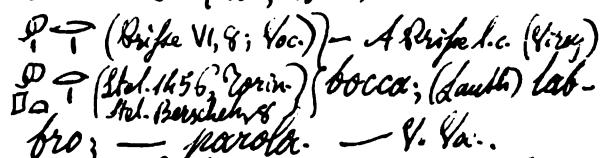 (Prisse VI, 8; Voc.) — A Prisse l.c. (Virey)
(Stel. 1456, Torin. Stel. Berschehr, 8 bocca; (Lauth) lab-
bro; — parola. — V. Va..